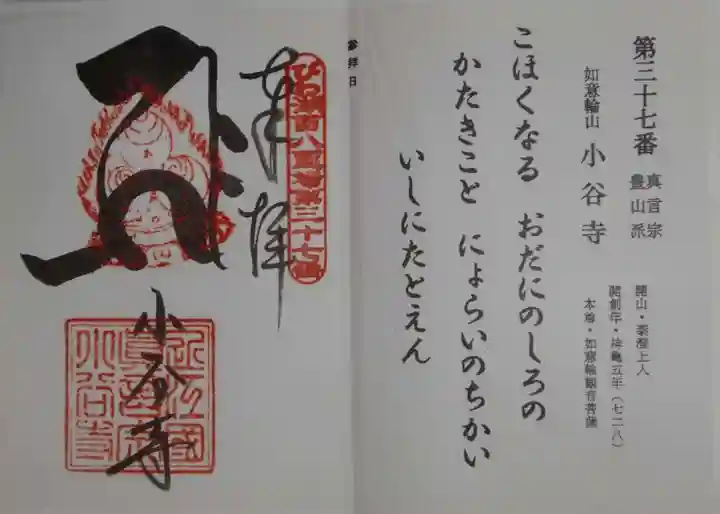 第三十七番
真言宗
豊山派
如意輪山 小谷寺
開山・泰澄上人
開創年・神亀五年（七二八）
本尊・如意輪観音菩薩
こほくなる おだにのしろの
かたきこと にょらいのちかい
いしにたとえん
参拝日
奉拝
小谷寺